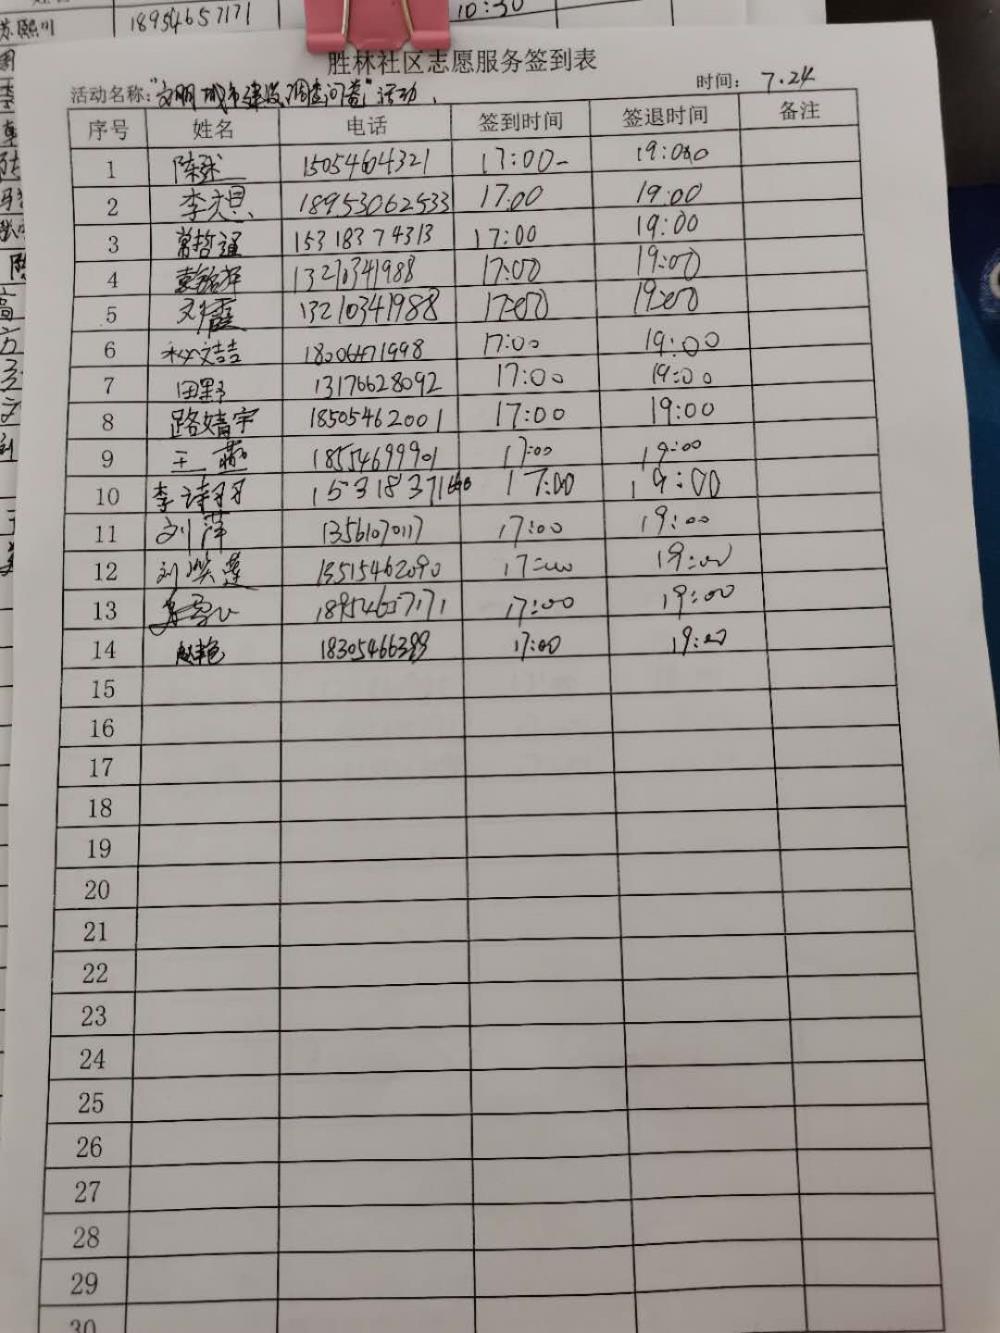 苏熙川 18954657171 10:30
胜林社区志愿服务签到表
活动名称:"文明城市建设,调查问卷"活动. 时间: 7.24
序号 姓名 电话 签到时间 签退时间 备注
1 15054604321 17:00 19:00
2 18953062533 17:00 19:00
3 常哲通 15318374313 17:00 19:00
4 13210341988 17:00 19:00
5 刘霞 13210341988 17:00 19:00
6 18006471998 17:00 19:00
7 田野 13176628092 17:00 19:00
8 路婧宇 18505462001 17:00 19:00
9 王 18554699901 17:00 19:00
10 李诗羽 17:00 19:00
11 刘萍 13561070117 17:00 19:00
12 刘 莲 13515462090 17:00 19:00
13 18954657171 17:00 19:00
14 赵艳 18305466399 17:00 19:00
15
16
17
18
19
20
21
22
23
24
25
26
27
28
29
30